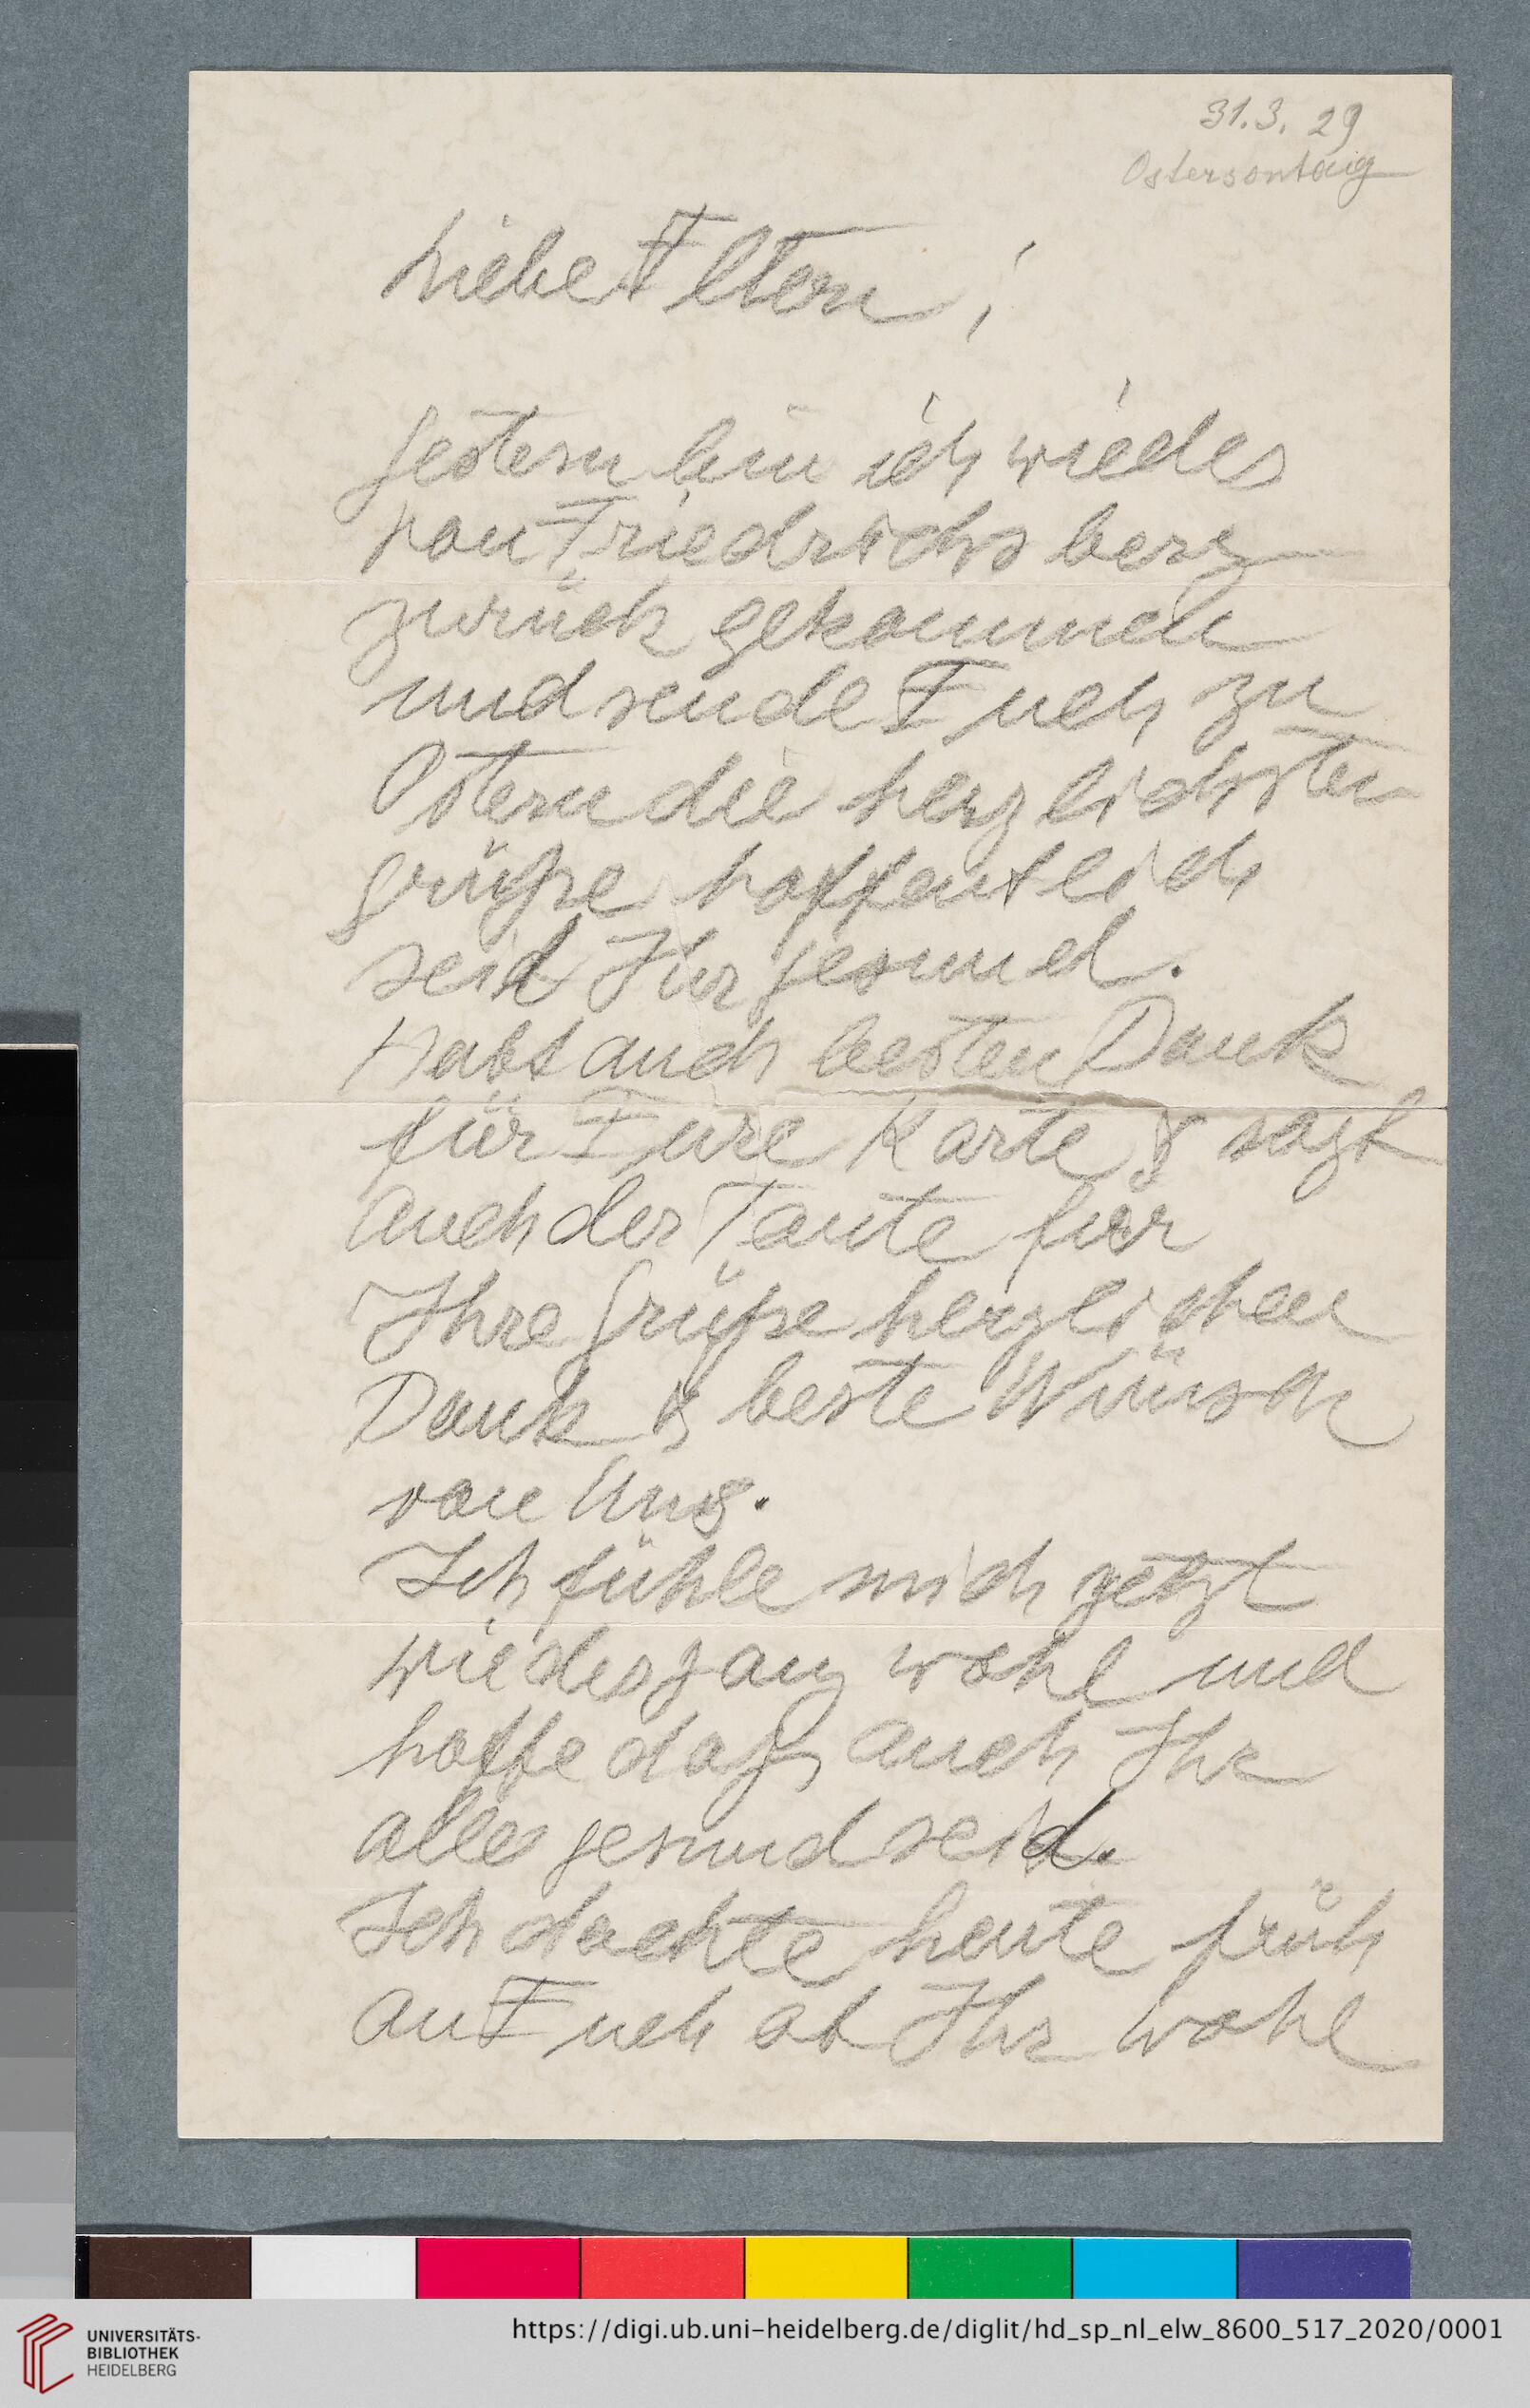 31.3. 29
Ostersontaig
Liebe Eltern!
gestern bin ich wieder
von Friedrichsberg
zurück gekommen
und sende Euch zu
Ostern die herzlichsten
grüße hoffentlich
seid Ihr gesund.
Habt auch besten Dank
für Eure Karte & sagt
auch der Tante für
Ihre Grüße herzlichen
Dank & beste Wünsche
von Uns.
Ich fühle mich jetzt
wieder ganz wohl und
hoffe daß auch Ihr
alle gesund seid.
Ich dachte heute früh
an Euch ob Ihr wohl
UNIVERSITÄTS-
BIBLIOTHEK
HEIDELBERG
https://digi.ub.uni-heidelberg.de/diglit/hd_sp_nl_elw_8600_517_2020/0001